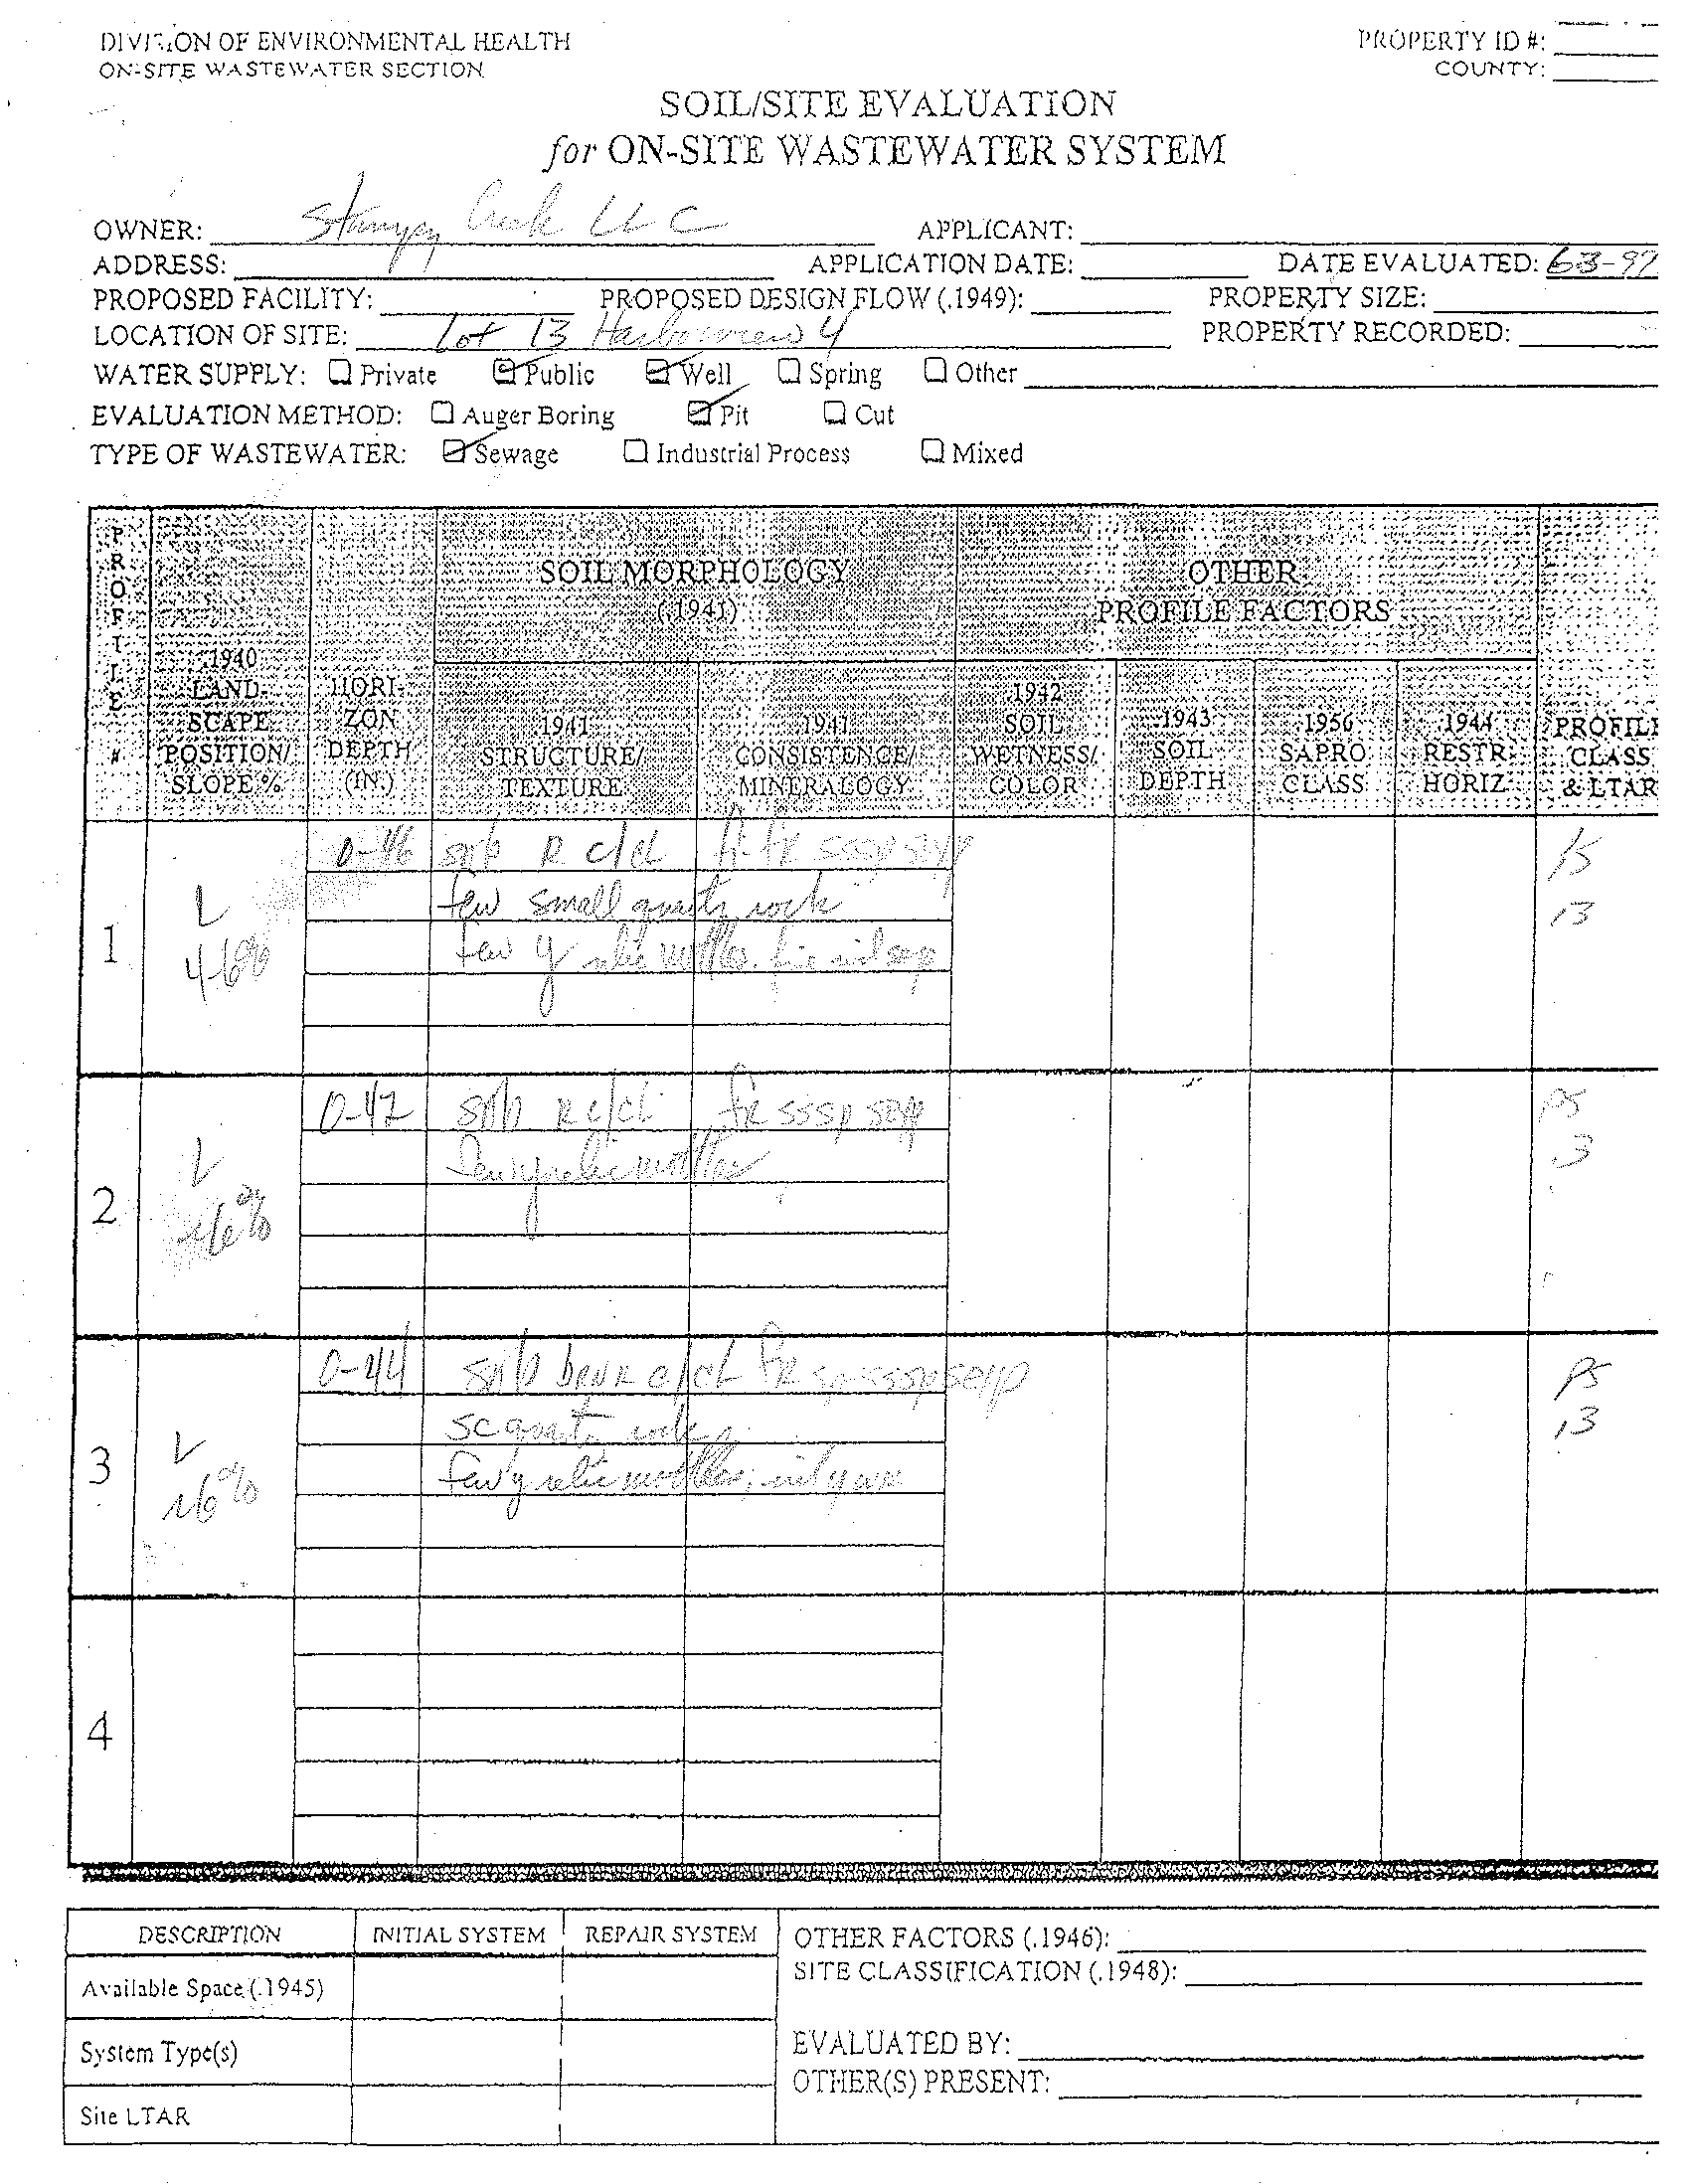 DIVISION OF ENVIRONMENTAL HEALTH
ON-SITE WASTEWATER SECTION
PROPERTY ID #:
COUNTY:
SOIL/SITE EVALUATION
for ON-SITE WASTEWATER SYSTEM
OWNER: Creek LLC APPLICANT:
ADDRESS: APPLICATION DATE: DATE EVALUATED: 6-3-97
PROPOSED FACILITY: PROPOSED DESIGN FLOW (.1949): PROPERTY SIZE:
LOCATION OF SITE: Lot 13 Harborview 4 PROPERTY RECORDED:
WATER SUPPLY: Private Public Well Spring Other
EVALUATION METHOD: Auger Boring Pit Cut
TYPE OF WASTEWATER: Sewage Industrial Process Mixed
PROFILE #
.1940 LAND- SCAPE POSITION/ SLOPE %
HORI- ZON DEPTH (IN.)
SOIL MORPHOLOGY (.1941)
.1941 STRUCTURE/ TEXTURE
.1941 CONSISTENCE/ MINERALOGY
OTHER PROFILE FACTORS
.1942 SOIL WETNESS/ COLOR
.1943 SOIL DEPTH
.1956 SAPRO CLASS
.1944 RESTR HORIZ
PROFILE CLASS & LTAR
1 L 4-6% 0-46 R c/cl
few small quartz rock
few y relic mottles
PS
.3
2 L 0-42 R c/cl fr sssp sexp
few y relic mottles
PS
.3
3 L 0-44 c/cl fr sssp sexp
quartz rock
few y relic mottles
PS
.3
4
DESCRIPTION INITIAL SYSTEM REPAIR SYSTEM
Available Space (.1945)
System Type(s)
Site LTAR
OTHER FACTORS (.1946):
SITE CLASSIFICATION (.1948):
EVALUATED BY:
OTHER(S) PRESENT: